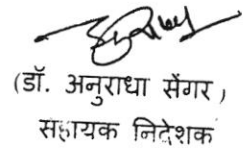 (डॉ. अनुराधा सेंगर)
सहायक निदेशक